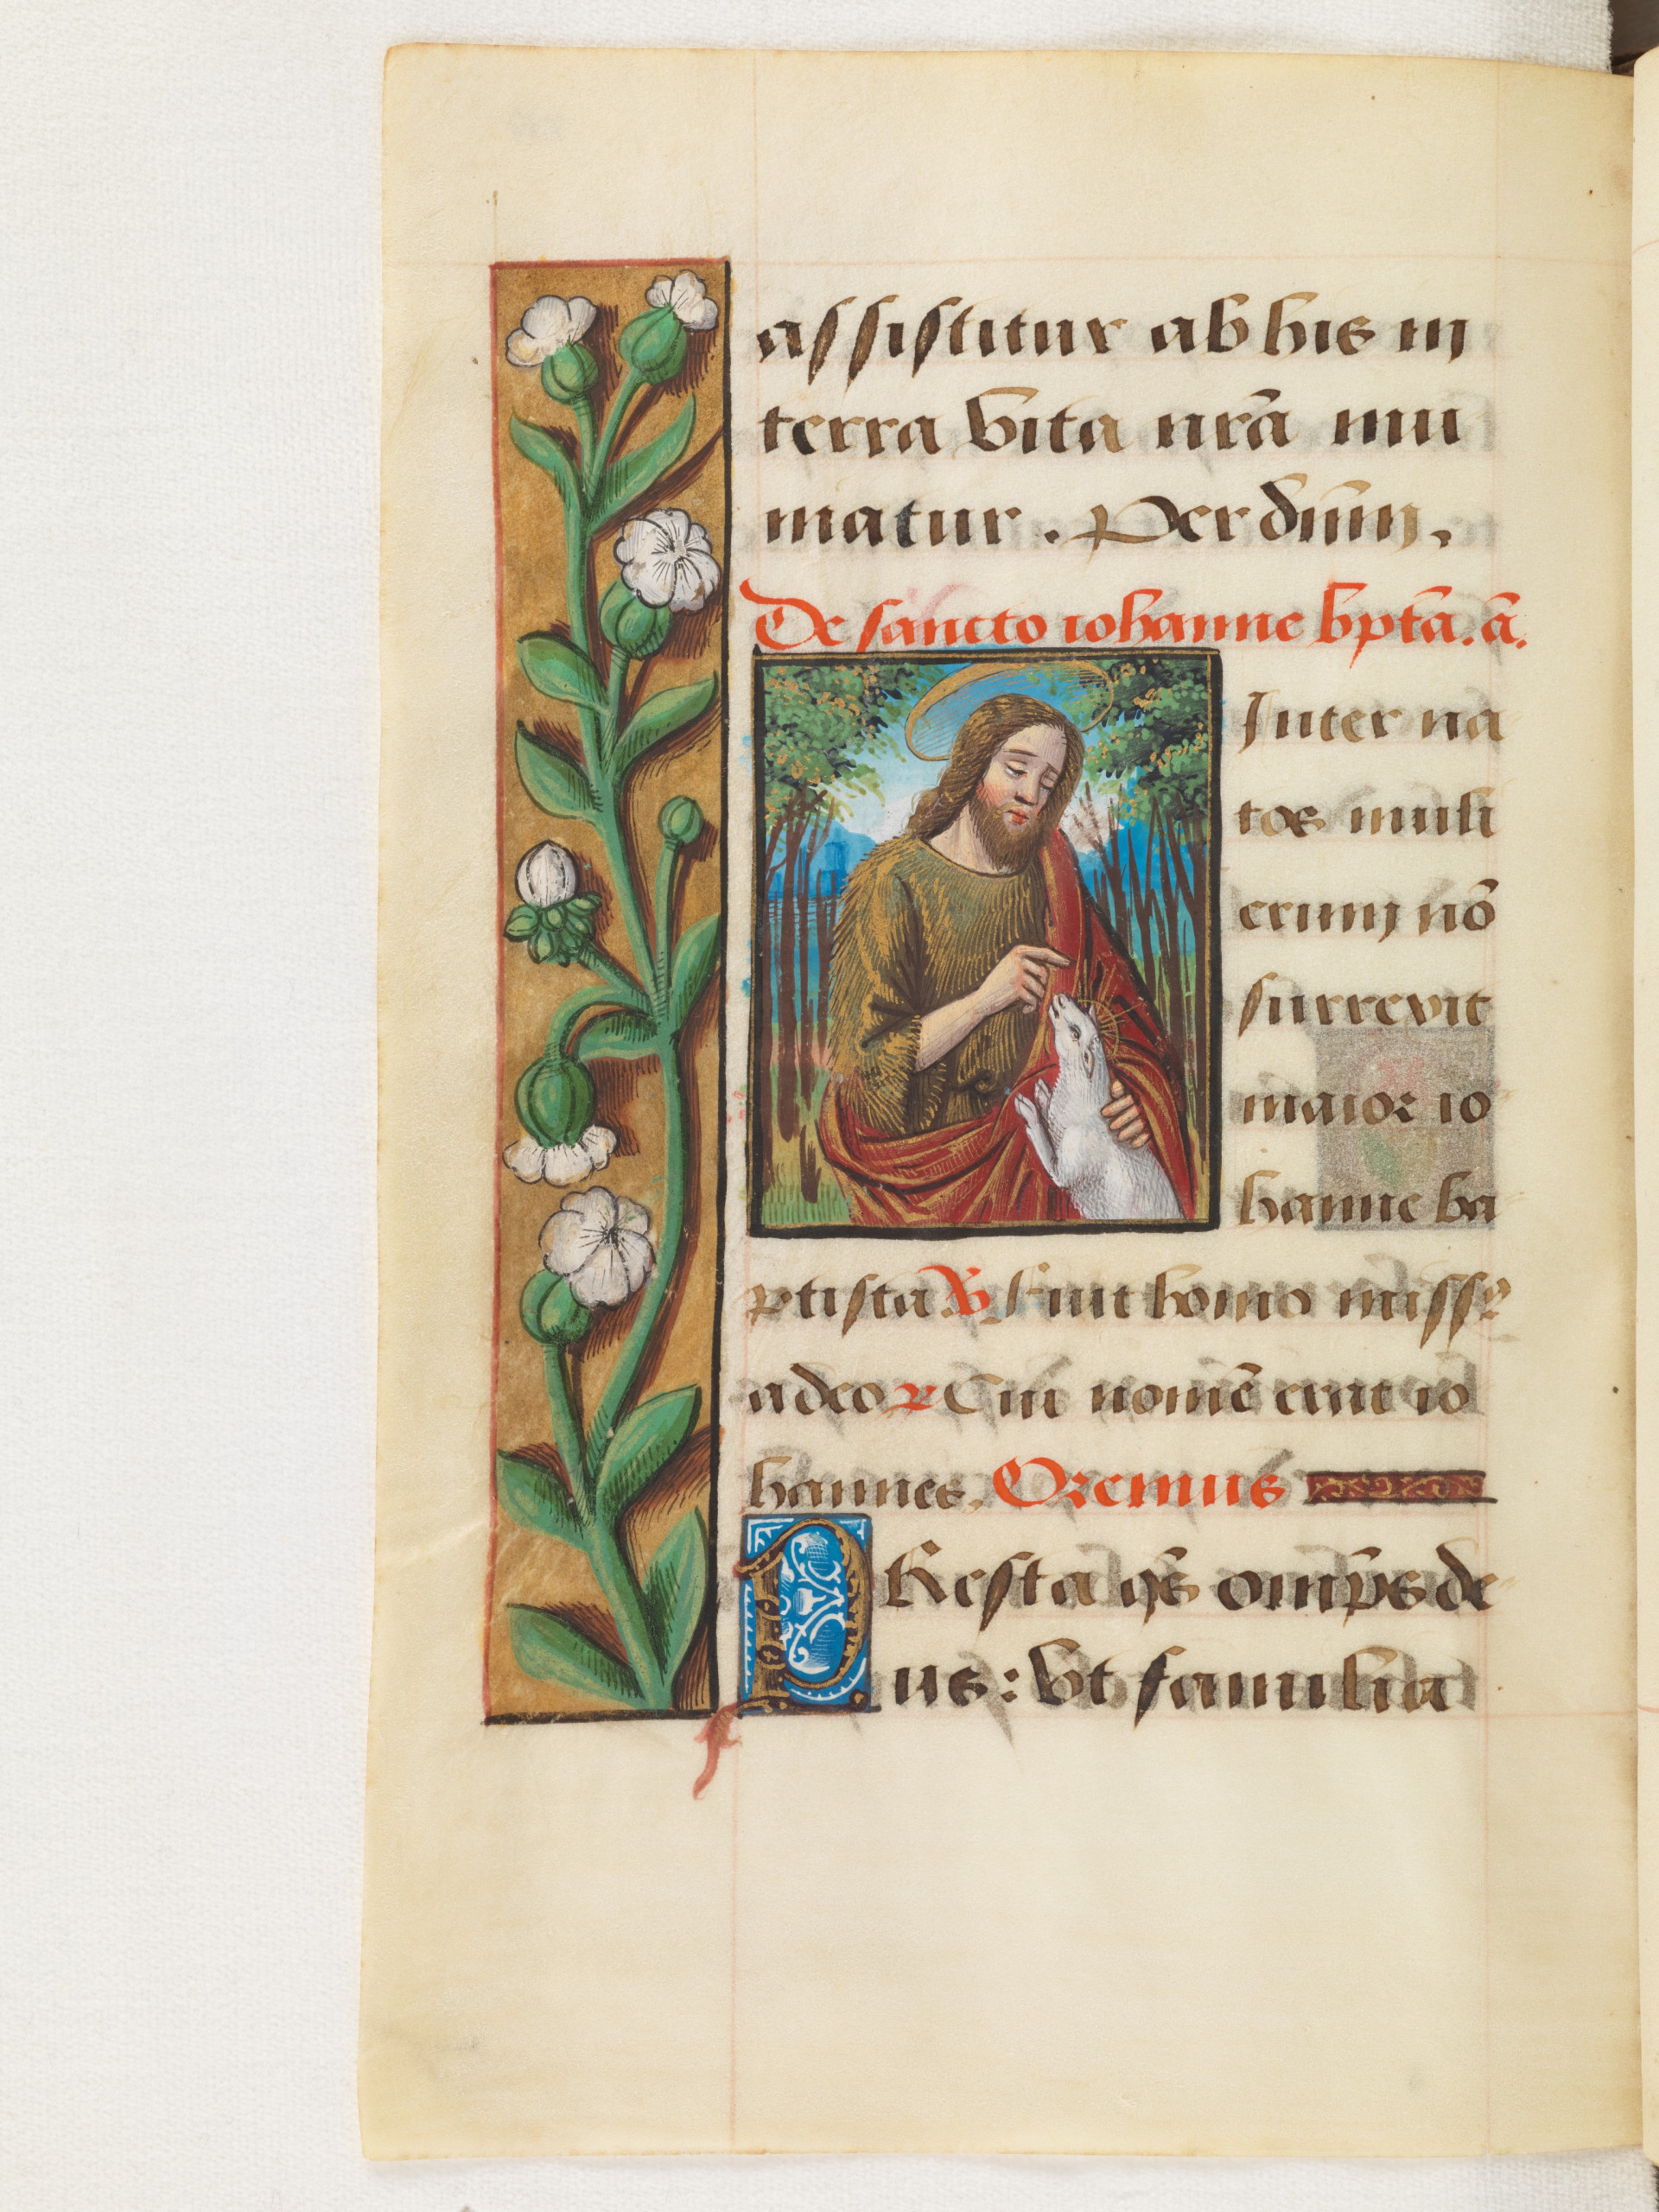 assistitur ab his in
terra vita nrā mu
niatur. Per dnm̄.
De sancto iohanne bptā. ā.
Inter na
tos muli
erum nō
surrexit
maior io
hanne ba
ptista ℣ Fuit homo missꝰ
a deo ℟ Cui nomē erat io
hannes. Oremus
PResta qs̄ omp̄s de
us: vt familia